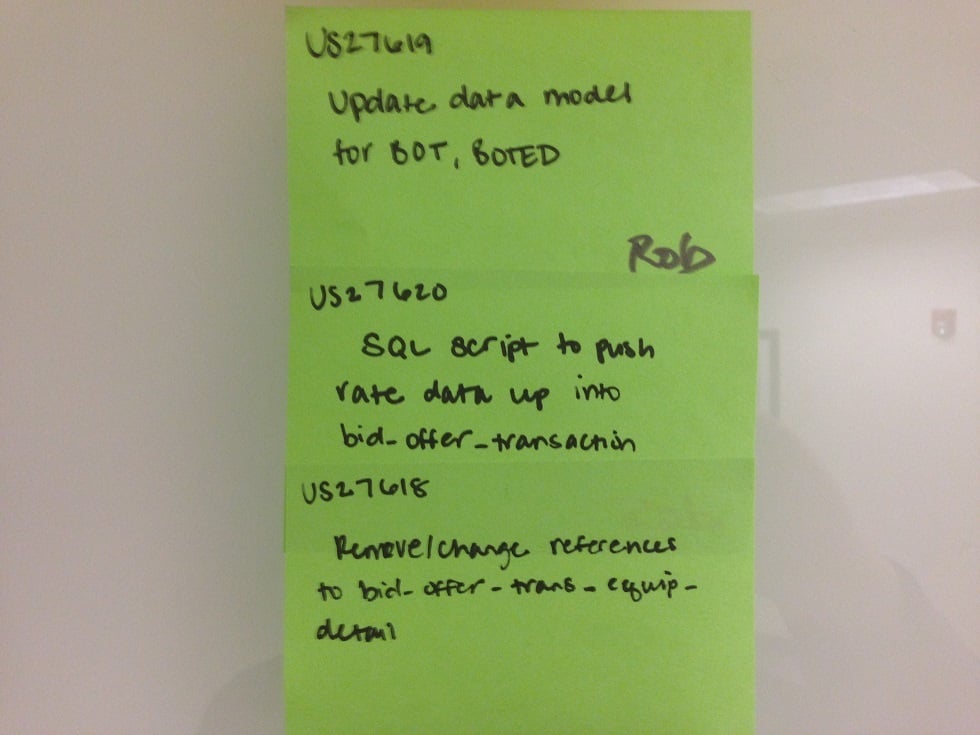 US27619
Update data model
for BOT, BOTED
Rob
US27620
SQL script to push
rate data up into
bid_offer_transaction
US27618
Remove/change references
to bid_offer_trans_equip_
detail